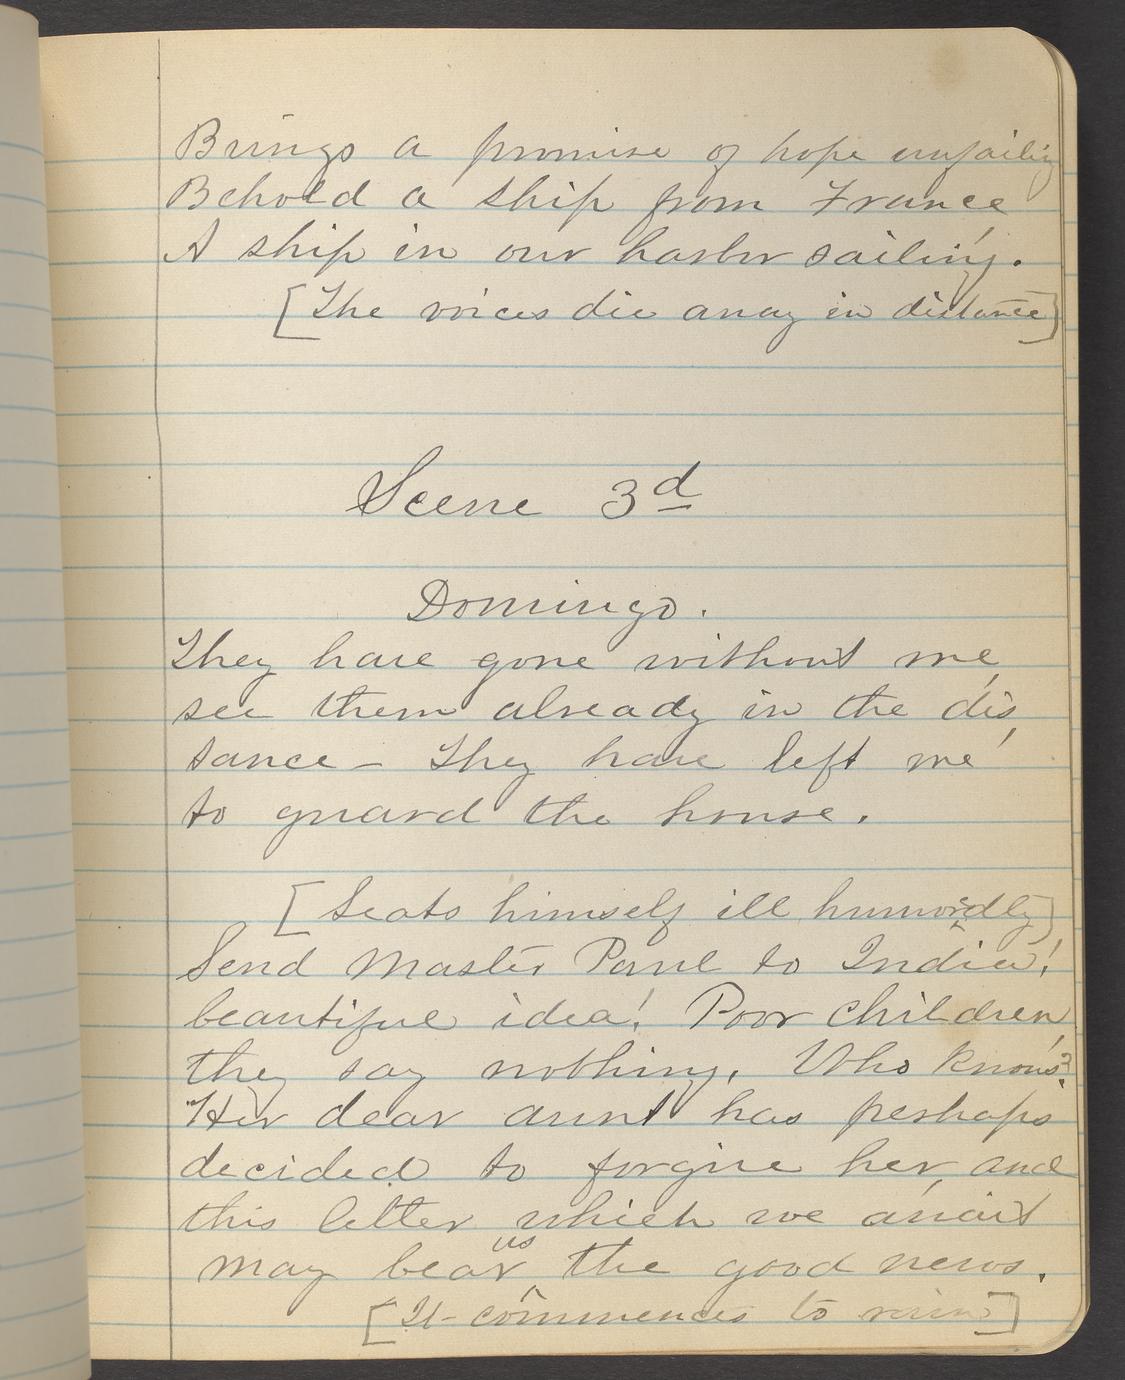 Brings a promise of hope unfailing
Behold a ship from France
A ship in our harbor sailing.
[The voices die away in distance]
Scene 3d
Domingo.
They have gone without me,
see them already in the dis,
tance - They have left me
to guard the house.
[Seats himself ill humordly]
Send Master Paul to India!
beautiful idea! Poor children,
they say nothing. Who knows?
Her dear aunt has perhaps
decided to forgive her, and
this letter which we await
may bear us the good news.
[It commences to rain]